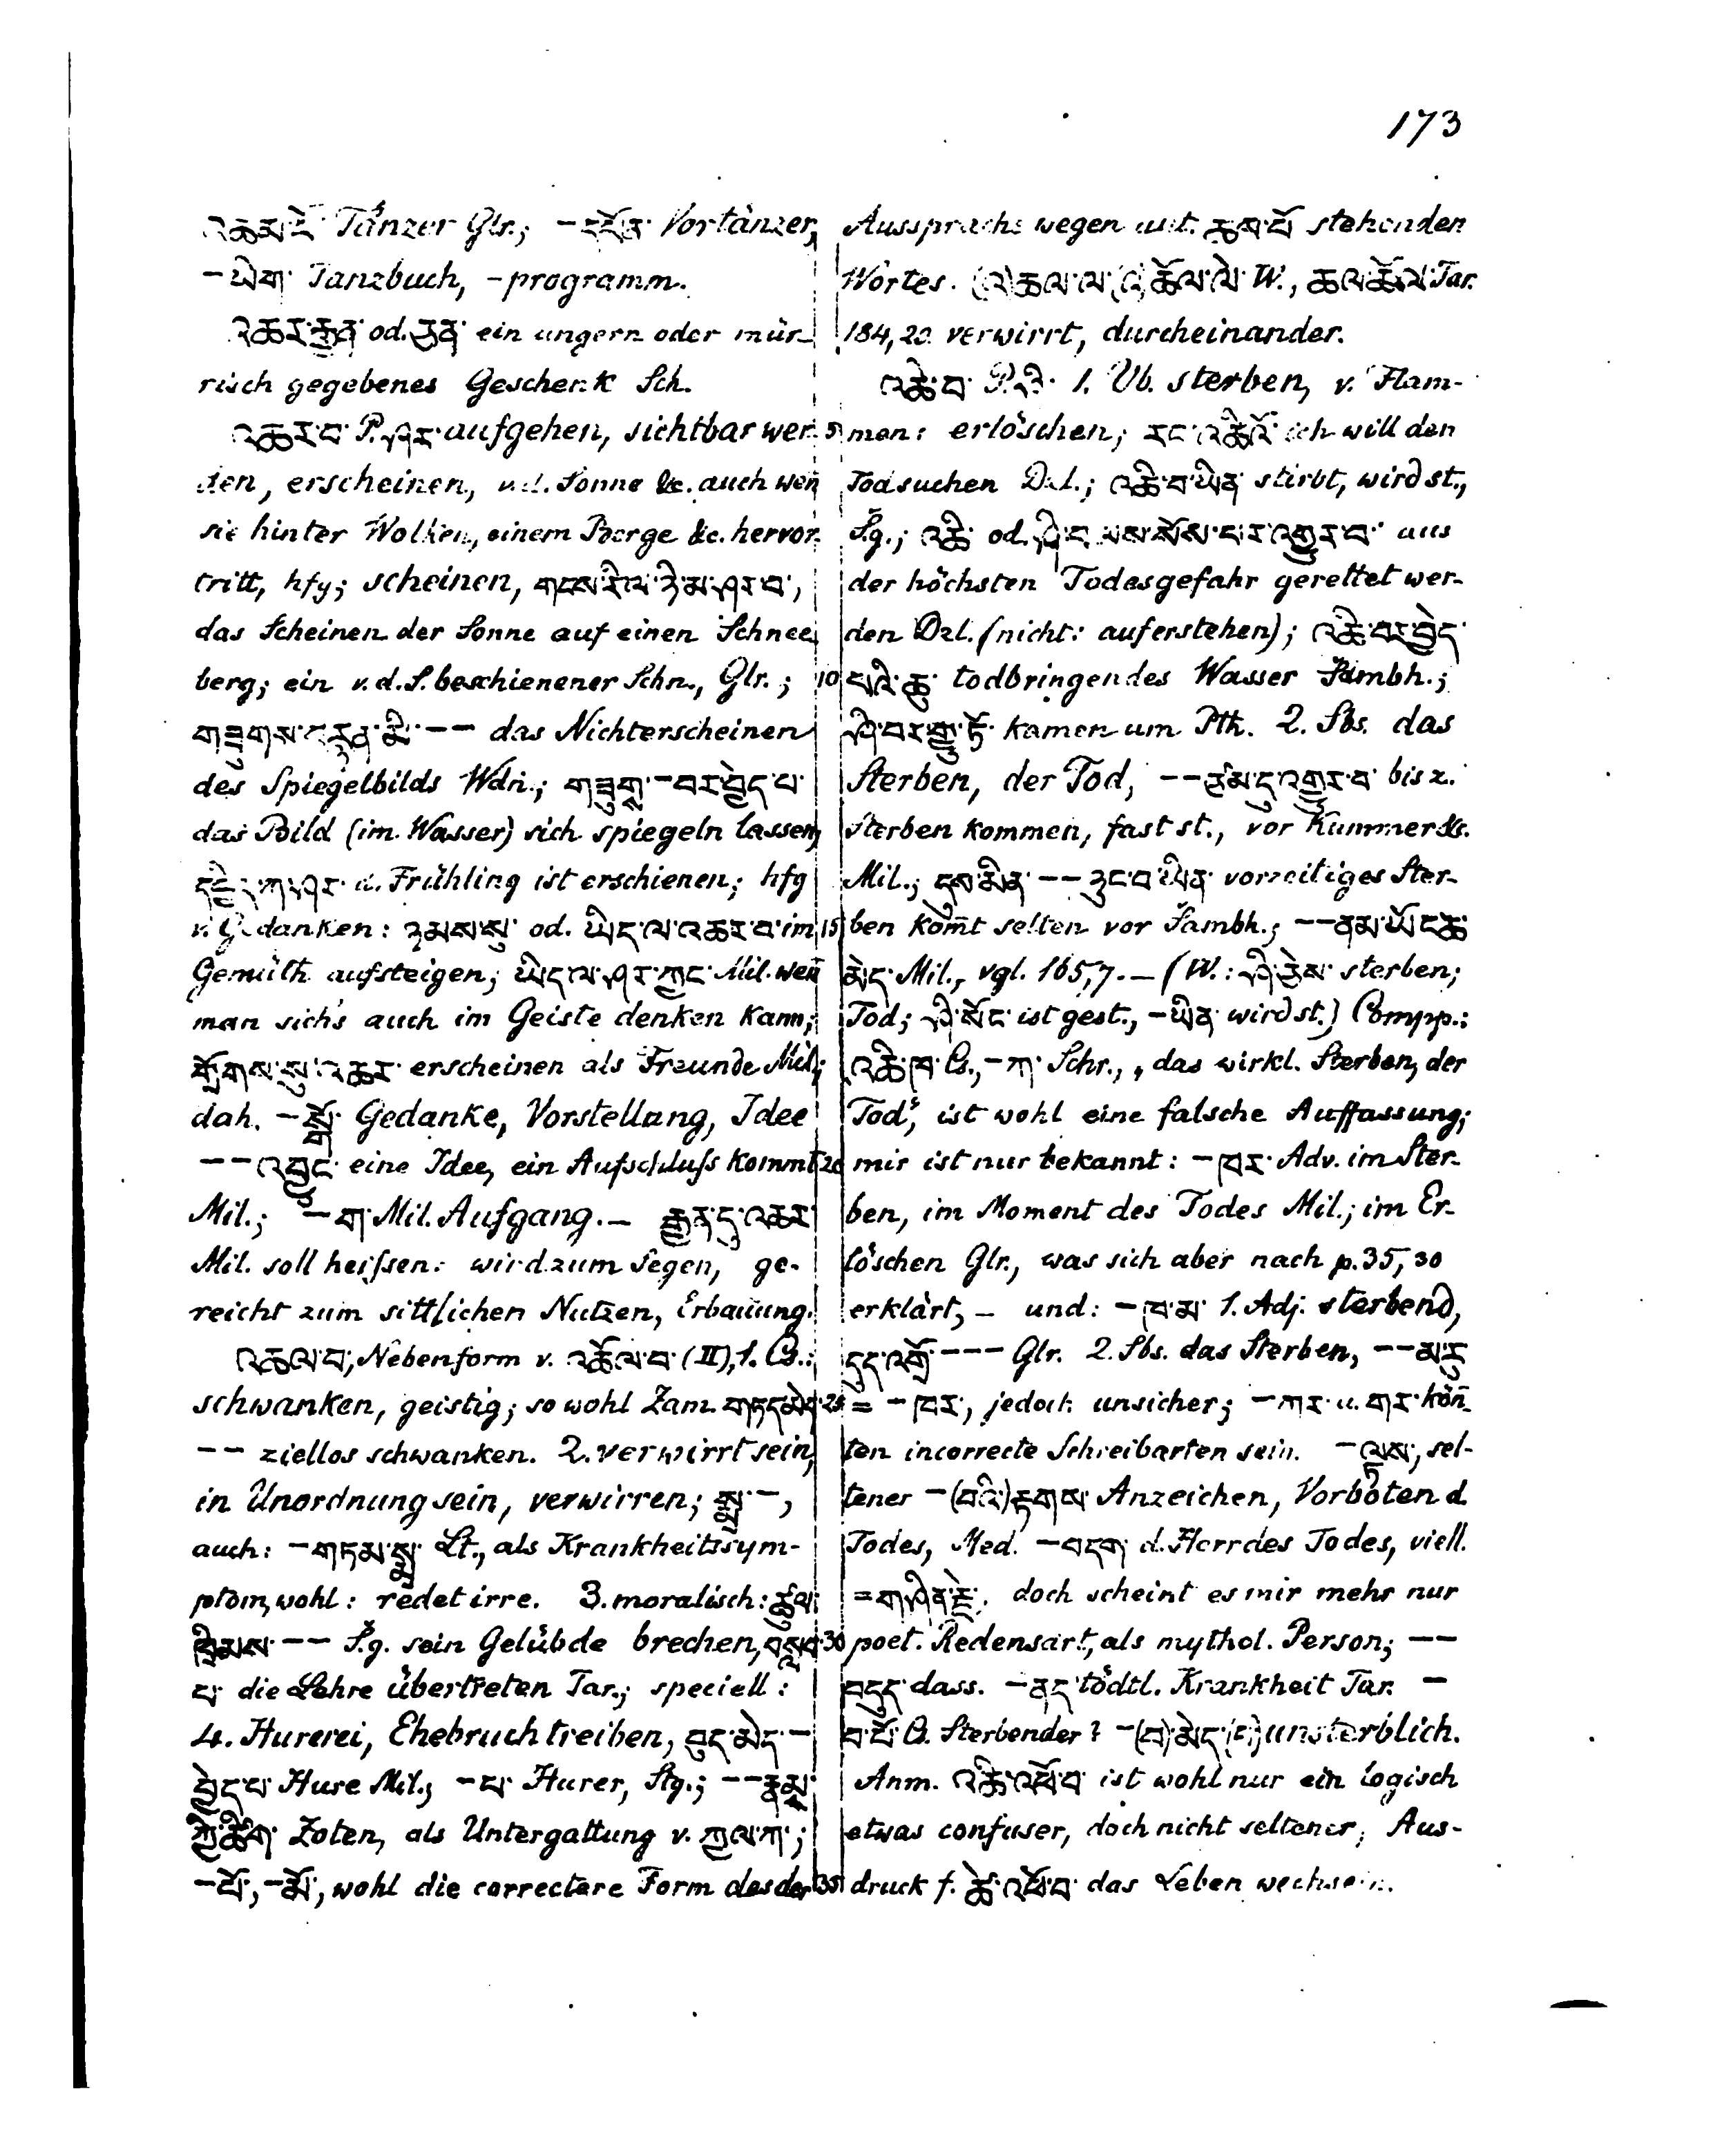 173
འཆམ་ Tänzer Glr.; –དཔོན་ Vortänzer,
–ཡིག་ Tanzbuch, –programm.
འཆར་རྐྱེན་ od. ein ungern oder mür-
risch gegebenes Geschenk Sch.
འཆར་བ་ P. ཤར་ aufgehen, sichtbar wer-
den, erscheinen, v.d. Sonne &c. auch wen̄
sie hinter Wolken, einem Berge &c. hervor-
tritt, hfg; scheinen, གངས་རི་ལ་ཉི་མ་ཤར་བ་,
das Scheinen der Sonne auf einen Schnee
berg; ein v.d.S. beschienener Schn., Glr.;
གཟུགས་བརྙན་མི་ –– das Nichterscheinen
des Spiegelbilds Wdn.; –བར་བྱེད་པ་
das Bild (im Wasser) sich spiegeln lassen,
ཤར་ d. Frühling ist erschienen; hfg
v. Gedanken: ཉམས་སུ་ od. ཡིད་ལ་འཆར་བ་ im
Gemüth aufsteigen; ཡིད་ལ་ཤར་ཀྱང་ Mil. wen̄
man sichs auch im Geiste denken kann;
གྲོགས་སུ་འཆར་ erscheinen als Freunde Mil.;
dah. –སྒོ་ Gedanke, Vorstellung, Idee
––འབྱུང་ eine Idee, ein Aufschluſs kommt
Mil.; –ག་ Mil. Aufgang. – རྒྱན་དུ་འཆར་
Mil. soll heiſsen: wird zum Segen, ge-
reicht zum sittlichen Nutzen, Erbauung.
འཆལ་བ་, Nebenform v. འཆོལ་བ་ (II), 1. Cs.:
schwanken, geistig; so wohl Zam. གཏད་མེད་
–– ziellos schwanken. 2. verwirrt sein,
in Unordnung sein, verwirren; སྨྲ་–,
auch: –གཏམ་སྨྲ་ Lt., als Krankheitssym-
ptom, wohl: redet irre. 3. moralisch: ཚུལ་
ཁྲིམས་ –– S̆.g. sein Gelübde brechen, བསླབ་
པ་ die Lehre übertreten Tar.; speciell:
4. Hurerei, Ehebruch treiben, བུད་མེད་–
བྱེད་པ་ Hure Mil.; –པ་ Hurer, Stg.; ––
ཀྱི་ཚིག་ Zoten, als Untergattung v. ཀྱལ་ཀ་;
–པོ་, –མོ་, wohl die correctere Form des der
Aussprache wegen mit ཆས་པོ་ stehenden
Wortes. (འ)ཆལ་ལ་(འ)ཆོལ་ལེ་ W., ཆལ་ཆོལ་ Tar.
184, 20. verwirrt, durcheinander.
འཆི་བ་ P. ཤི་ 1. Vb. sterben, v. Flam-
men: erlöschen; རང་འཆིའོ་ ich will den
Tod suchen Dzl.; འཆི་བ་ཡིན་ stirbt, wird st.,
S̆.g.; འཆི་ od. ཤི་བ་ལས་སོས་པར་འགྱུར་བ་ aus
der höchsten Todesgefahr gerettet wer-
den Dzl. (nicht: auferstehen); འཆི་བར་བྱེད་
པའི་ཆུ་ todbringendes Wasser Sambh.;
ཤི་བར་གྱུར་ཏོ་ kamen um Pth. 2. Sbs. das
Sterben, der Tod, ––ཉམ་དུ་འགྱུར་བ་ bis z.
Sterben kommen, fast st., vor Kummer &c.
Mil.; དུས་མིན་ –– ཉུང་བ་ཡིན་ vorzeitiges Ster-
ben kom̄t selten vor Sambh.; ––ནམ་ཡོང་ཆ་
མེད་ Mil., vgl. 165,7. – (W.: ཤི་ཅེས་ sterben;
Tod; ཤི་སོང་ ist gest., –ཡིན་ wird st.) Compp.:
འཆི་ཁ་ Cs., –ཀ་ Schr., „das wirkl. Sterben, der
Tod“, ist wohl eine falsche Auffassung;
mir ist nur bekannt: –ཁར་ Adv. im Ster-
ben, im Moment des Todes Mil.; im Er-
löschen Glr., was sich aber nach p.35,30
erklärt, – und: –ཁ་མ་ 1. Adj. sterbend,
དུད་འགྲོ་ ––– Glr. 2. Sbs. das Sterben, ––མ་རུ་
= –ཁར་, jedoch unsicher; –ཀར་ u. གར་ kön̄-
ten incorrecte Schreibarten sein. –ལྟས་, sel-
tener –(བའི་)རྟགས་ Anzeichen, Vorboten d.
Todes, Med. –བདག་ d. Herr des Todes, viell.
=གཤིན་རྗེ་, doch scheint es mir mehr nur
poet. Redensart, als mythol. Person; ––
བདུད་ dass. –ནད་ tödtl. Krankheit Tar. –
བ་པོ་ Cs. Sterbender? –(བ)་མེད་(པ) unsterblich.
Anm. འཆི་འཕོ་བ་ ist wohl nur ein logisch
etwas confuser, doch nicht seltener, Aus-
druck f. ཚེ་འཕོ་བ་ das Leben wechseln.
5
10
15
20
25
30
35